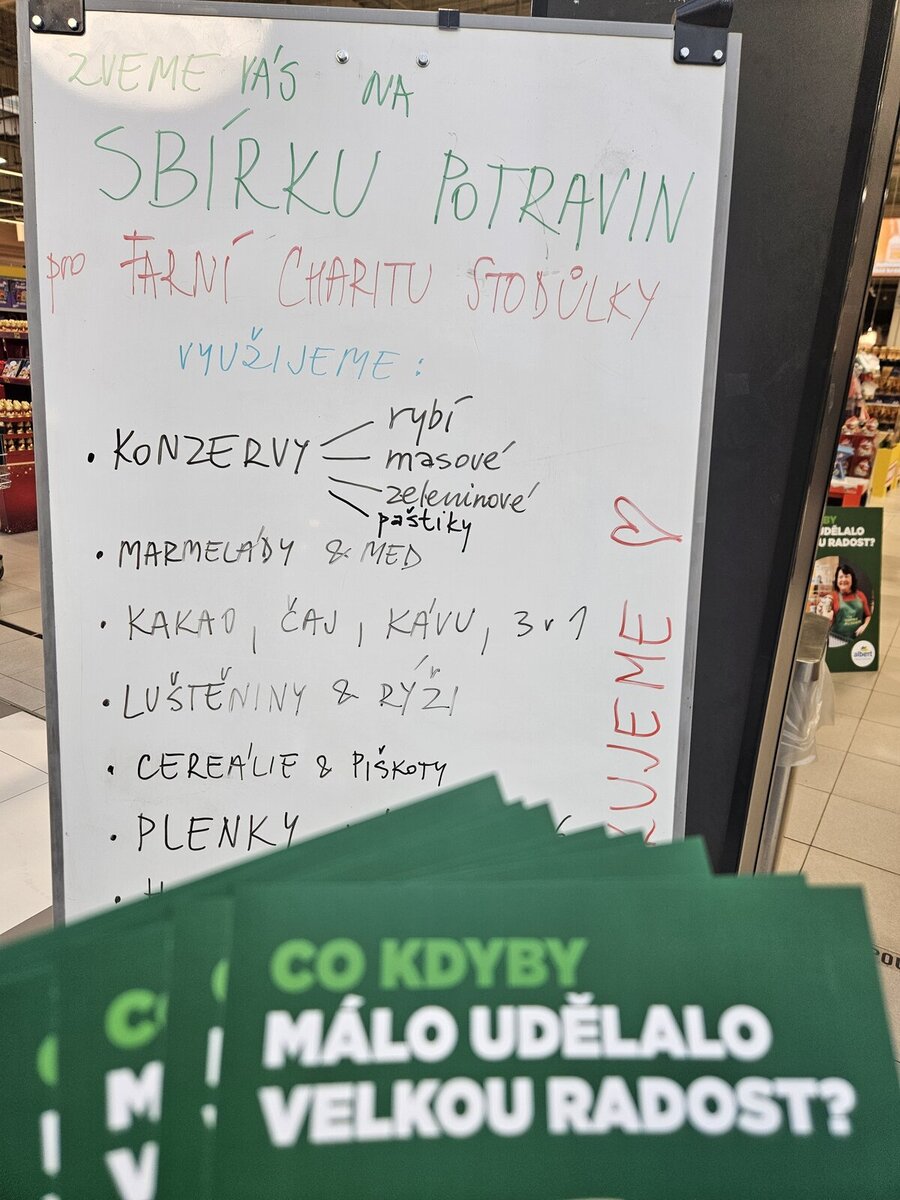 ZVEME VÁS NA
SBÍRKU POTRAVIN
pro FARNÍ CHARITU STODŮLKY
VYUŽIJEME:
• KONZERVY
rybí
masové
zeleninové
paštiky
• MARMELÁDY & MED
• KAKAO, ČAJ, KÁVU, 3v1
• LUŠTĚNINY & RÝŽI
• CEREÁLIE & PIŠKOTY
• PLENKY
KUJEME ♡
BY
UDĚLALO
U RADOST?
albert
CO KDYBY
MÁLO UDĚLALO
VELKOU RADOST?
CO
M
V